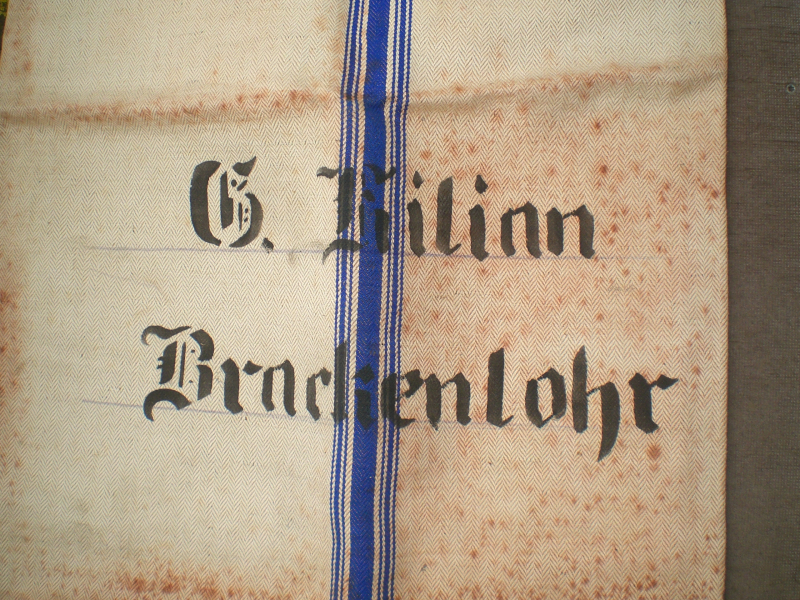 G. Kilian
Brackenlohr